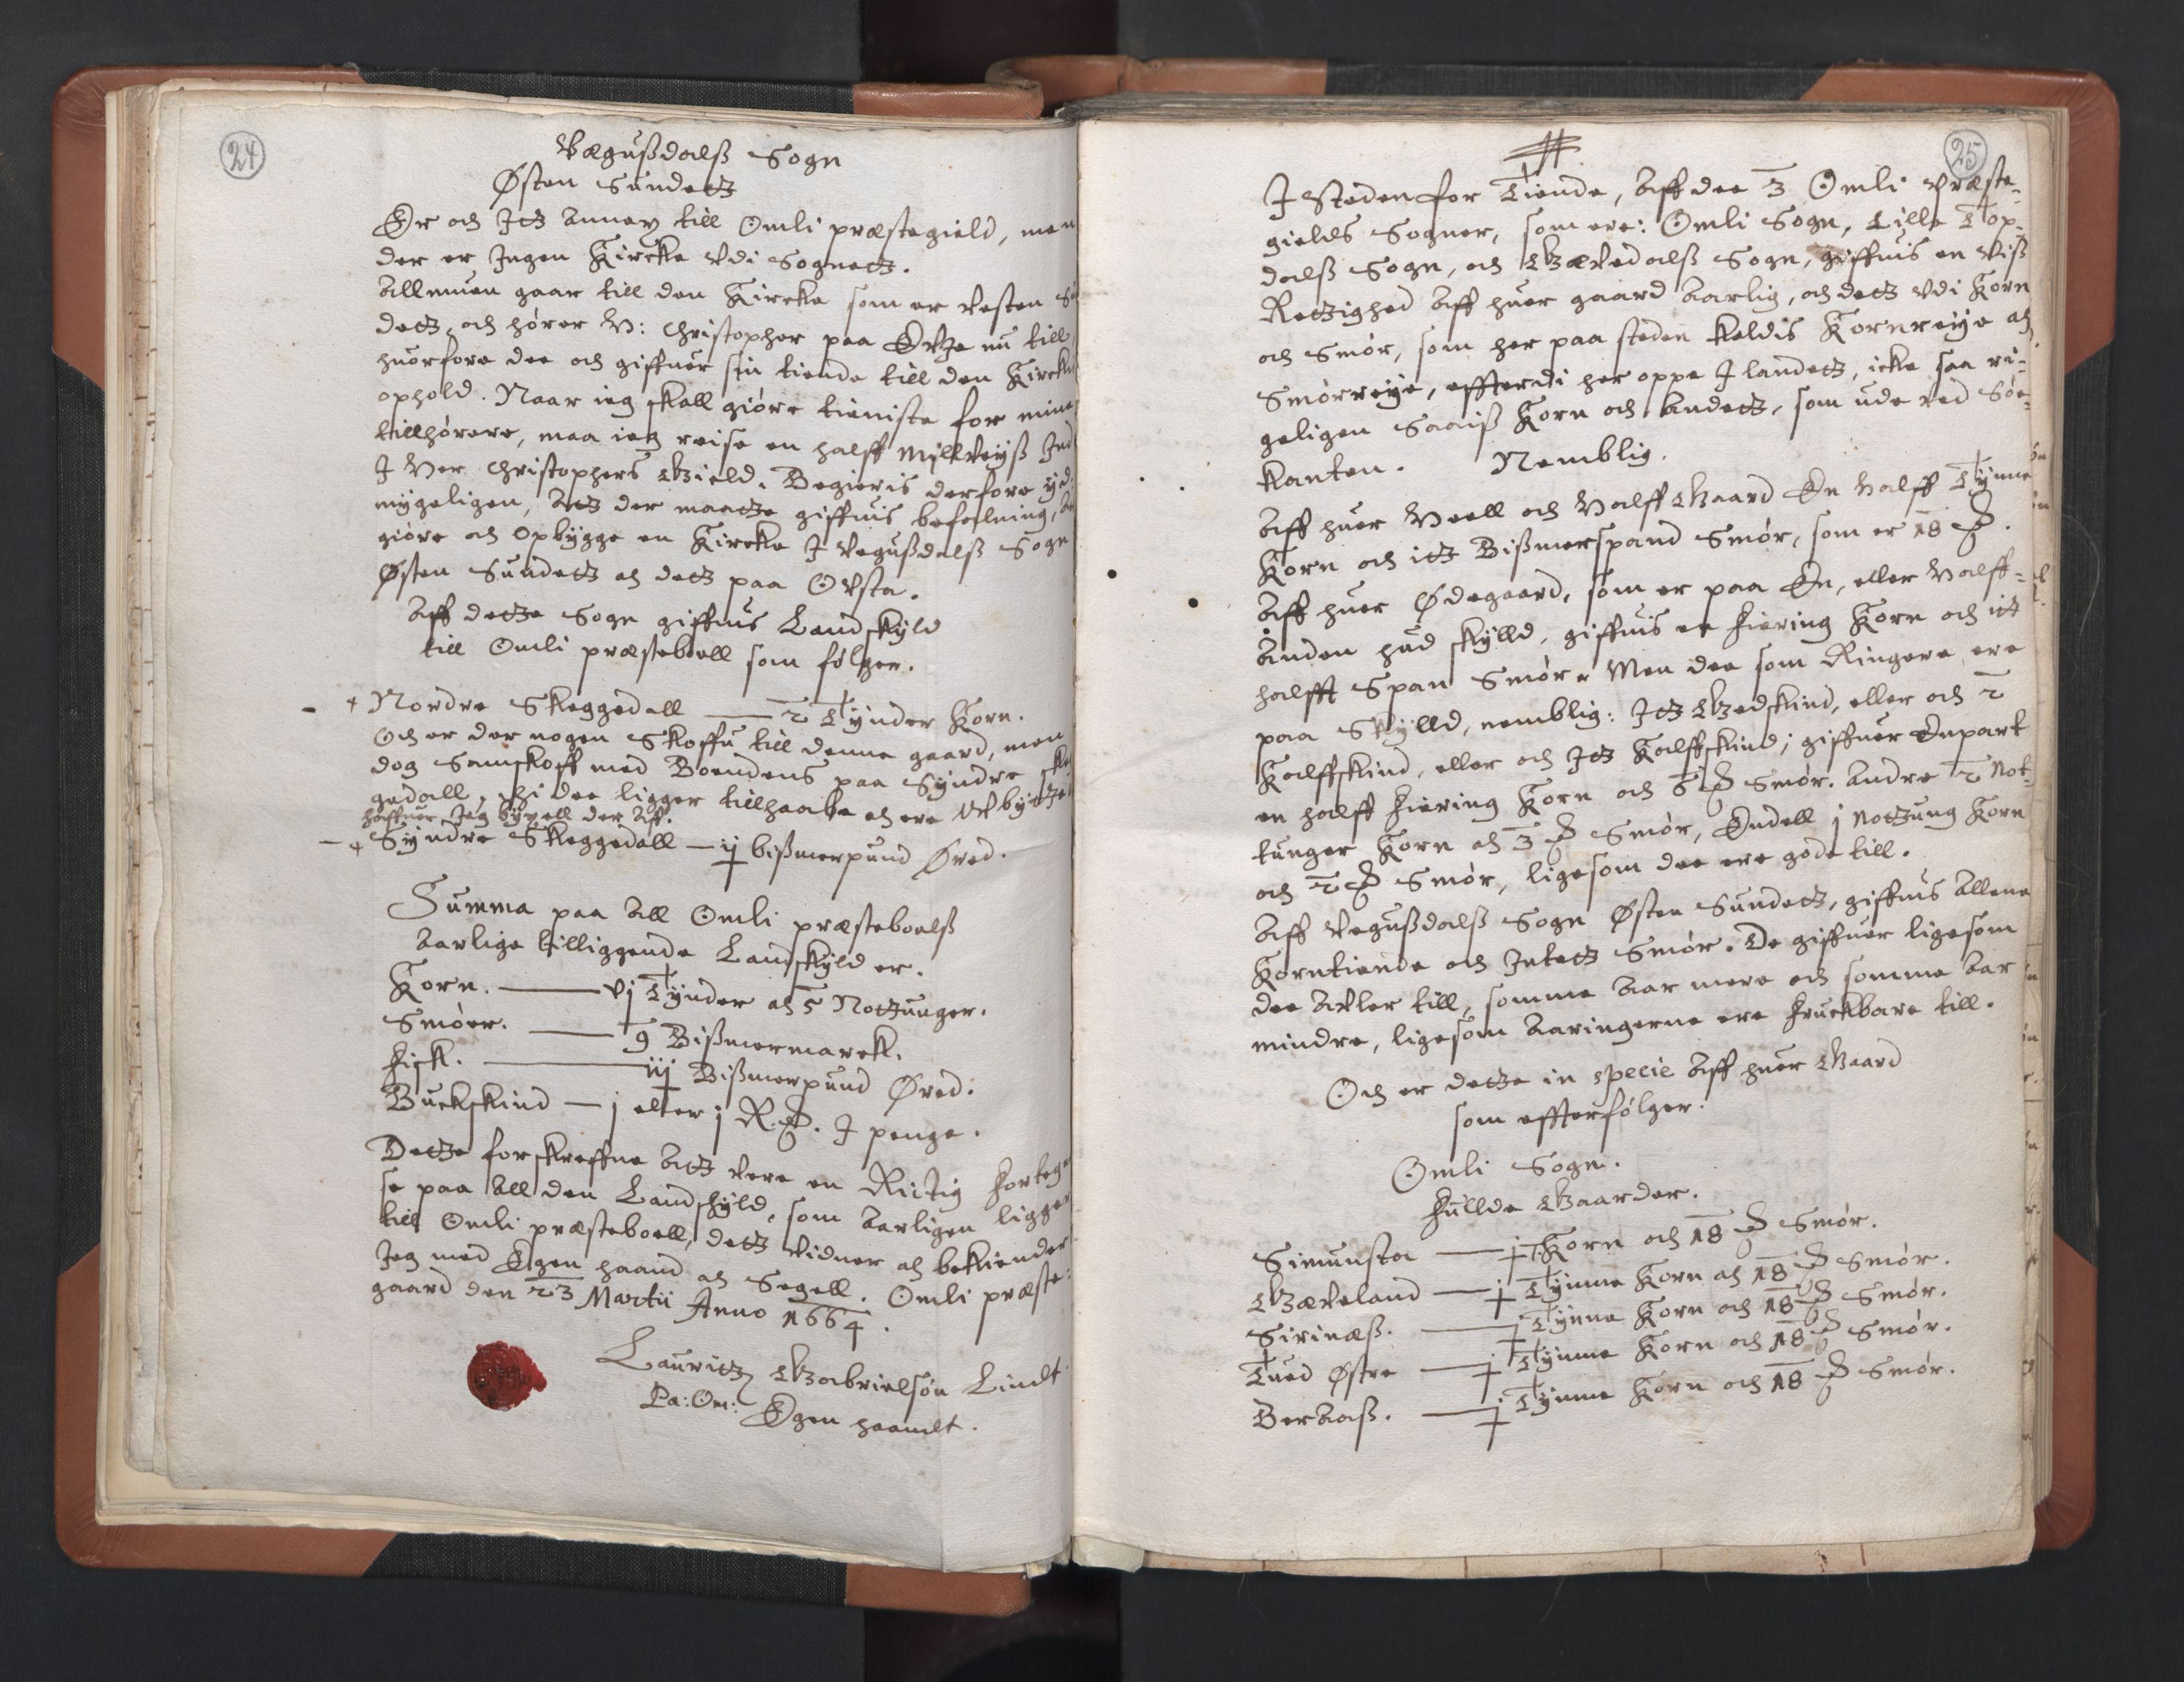 24
Vægußdalß Sogn
Østen Sundetz
Er och Itz Annex till Omli præstegield, men
der er Ingen Kircke vdi Sognetz.
Allmuen gaar till den Kircke som er vesten
detz, och hører H: Christopher paa Evje nu till
huorfore dee och giffuer sin tiende till den Kirckis
ophold. Naar ieg skall giøre tieniste for mine
tillhørere, maa ieg reise en halff Mijllveyß Ind
I Her Christophers Gield. Begieris derfore ydmygeligen, Atz der maatte giffuis befalning, At
giøre och opbygge en Kircke I Vegußdalß Sogn
Østen Sundetz och detz paa Ovsta.
Aff dette Sogn giffuis Landskyld
till Omli præsteboell som følger.
+ Nordre Skeggedall — 2 Tynder Korn.
Och er der nogen Skoffu till denne gaard, men
dog Samskoff med Boendens paa Syndre
gedall, thi dee ligger tillhaabe och ere
haffuer Jeg bÿxell der Aff.
+ Syndre Skeggedall — ij bißmerpund Øred.
Summa paa All Omli præsteboelß
Aarlige tilliggende Landskyld er.
Korn. — vj Tynder och 5 Notzunger.
Smøer. — 9 Bißmermarck.
Fisk. — iij Bißmerpund Øred.
Buckskind — j eller j R. D. I penge.
Dette forskreffne Atz vere en Rictig
se paa All den Landskyld, som Aarligen ligger
till Omli præsteboell, detz vidner och bekiender
Jeg med Egen haand och Segell. Omli præste-
gaard den 23 Martii Anno 1664.
Lauritz Gabrielsøn Lindt
Pa: Om: Egen haandt.
25
I Steden for Tiende, Aff dee 3 Omli Præste-
gields Sogner, som ere: Omli Sogn, Lille Top-
dalß Sogn, och Gævedalß Sogn, giffuis en viß
Retzighed Aff huer gaard Aarlig, och detz vdi Korn
och Smør, som her paa steden kaldis Kornreije och
Smørreije, effterdi her oppe I landetz, icke saa ri-
geligen Saaiß Korn och Andetz, som ude ved Søe-
kanten. Nemblig.
Aff huer Heell och Halff Gaard En Halff Tynne
Korn och itz Bißmerspand Smør, som er 18 ℔.
Aff huer Ødegaard, som er paa En, eller Halff-
Anden hud skylld, giffuis en Fiering Korn och itt
halfft Span Smør. Men dee som Ringere ere
paa Skylld, nemblig: Itz Gedskind, eller och 2
Kalffskind, eller och Itz Kalffskind; giffuer Enpart
en halff Fiering Korn och 6 ℔ Smør. Andre 2 Not-
tunger Korn och 3 ℔ Smør, Endell j Notzung Korn
och 2 ℔ Smør, ligesom dee ere gode till.
Aff Vegußdalß Sogn Østen Sundetz, giffuis Allene
Korntiende och Intetz Smør. De giffuer ligesom
dee Avler till, somme Aar mere och somme Aar
mindre, ligesom Aaringerne ere Fruckbare till.
Och er dette in specie Aff huer Gaard
som effterfølger.
Omli Sogn.
Fullde Gaarder.
Simunsta — j T. Korn och 18 ℔ Smør.
Gæveland — j Tynne Korn och 18 ℔ Smør.
Sirinæß. — j Tynne Korn och 18 ℔ Smør.
Tued Østre — j Tynne Korn och 18 ℔ Smør.
Beraas. — j Tynne Korn och 18 ℔ Smør.